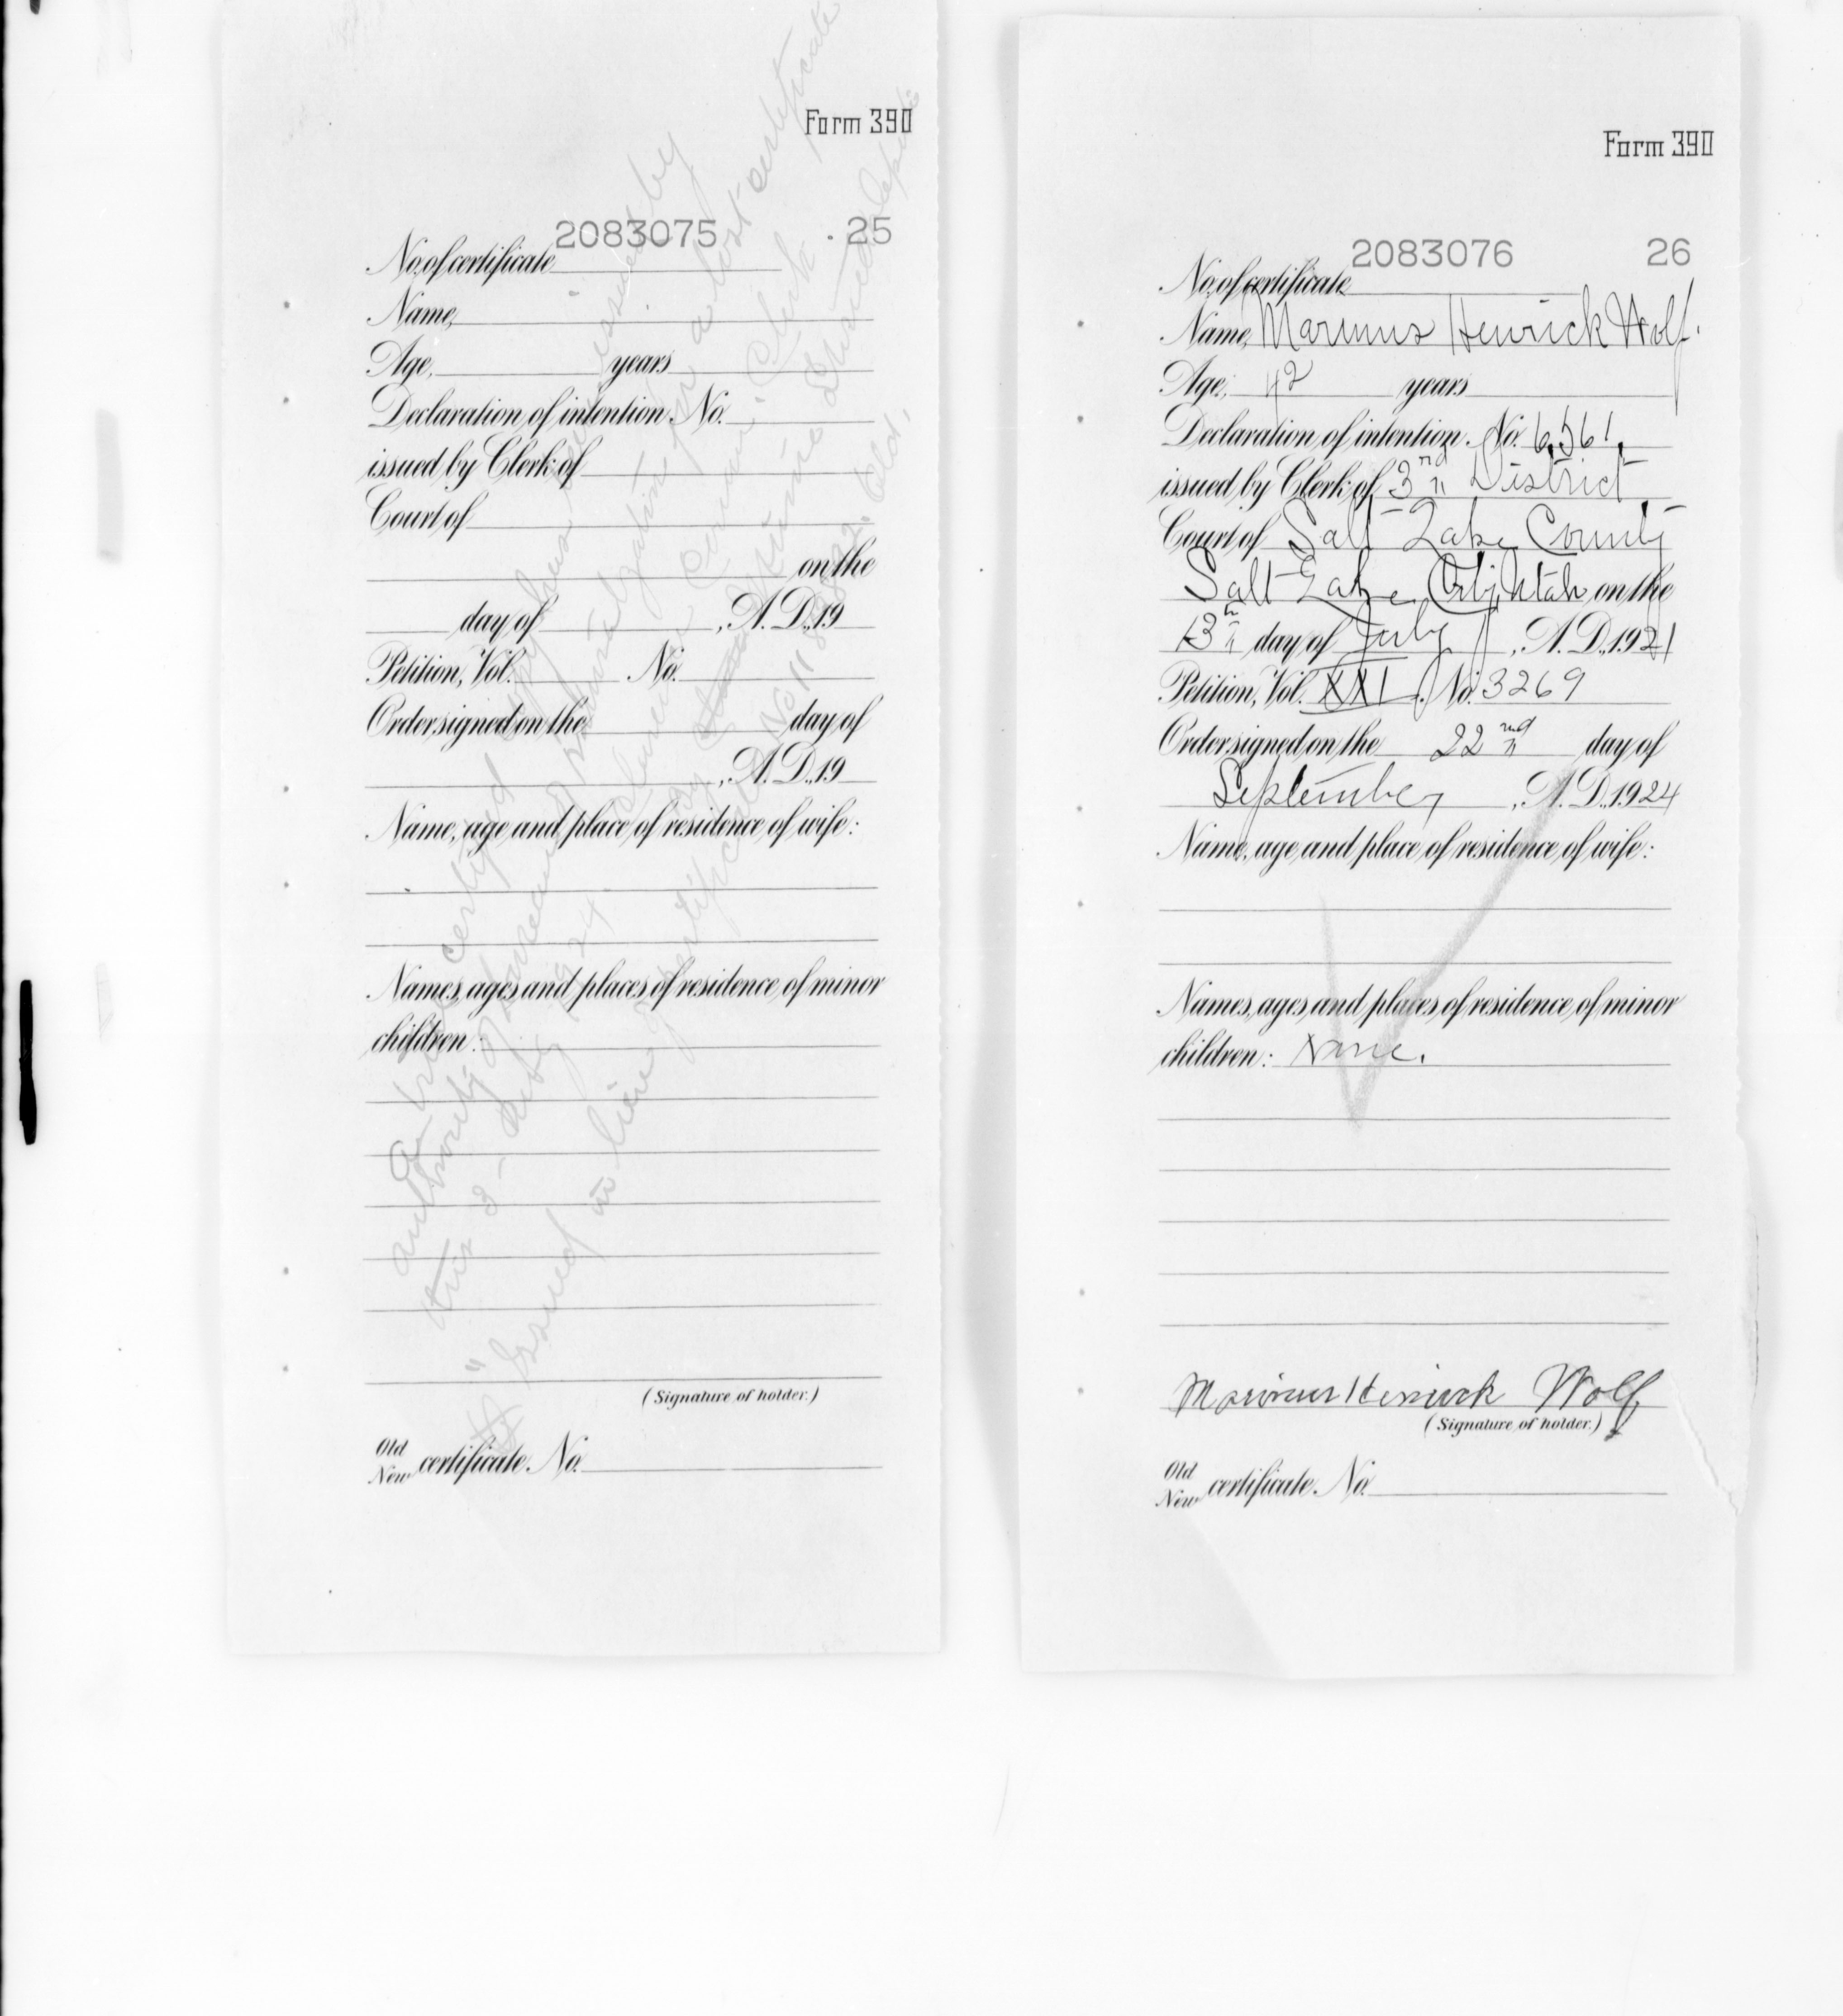 Form 390
2083075 25
No. of certificate
Name,
Age, years
Declaration of intention. No.
issued by Clerk of
Court of
on the
day of , A. D., 19
Petition, Vol. No.
Order signed on the day of
, A. D., 19
Name, age and place of residence of wife:
Names, ages and places of residence of minor
children:
(Signature of holder.)
Old
New certificate. No.
a true certified issued by
authority of naturalization for a lost certificate
this 3 - 1924
"Issued in lieu of certificate No
Form 390
2083076 26
No. of certificate
Name, Marinus Henrick Wolf.
Age, 42 years
Declaration of intention. No. 6561.
issued by Clerk of 3rd District
Court of Salt Lake County
Salt Lake City, Utah on the
13th day of July , A. D., 1921
Petition, Vol. XXI. No. 3269
Order signed on the 22nd day of
September , A. D., 1924
Name, age and place of residence of wife:
Names, ages and places of residence of minor
children: None.
Marinus Henrick Wolf
(Signature of holder.)
Old
New certificate. No.